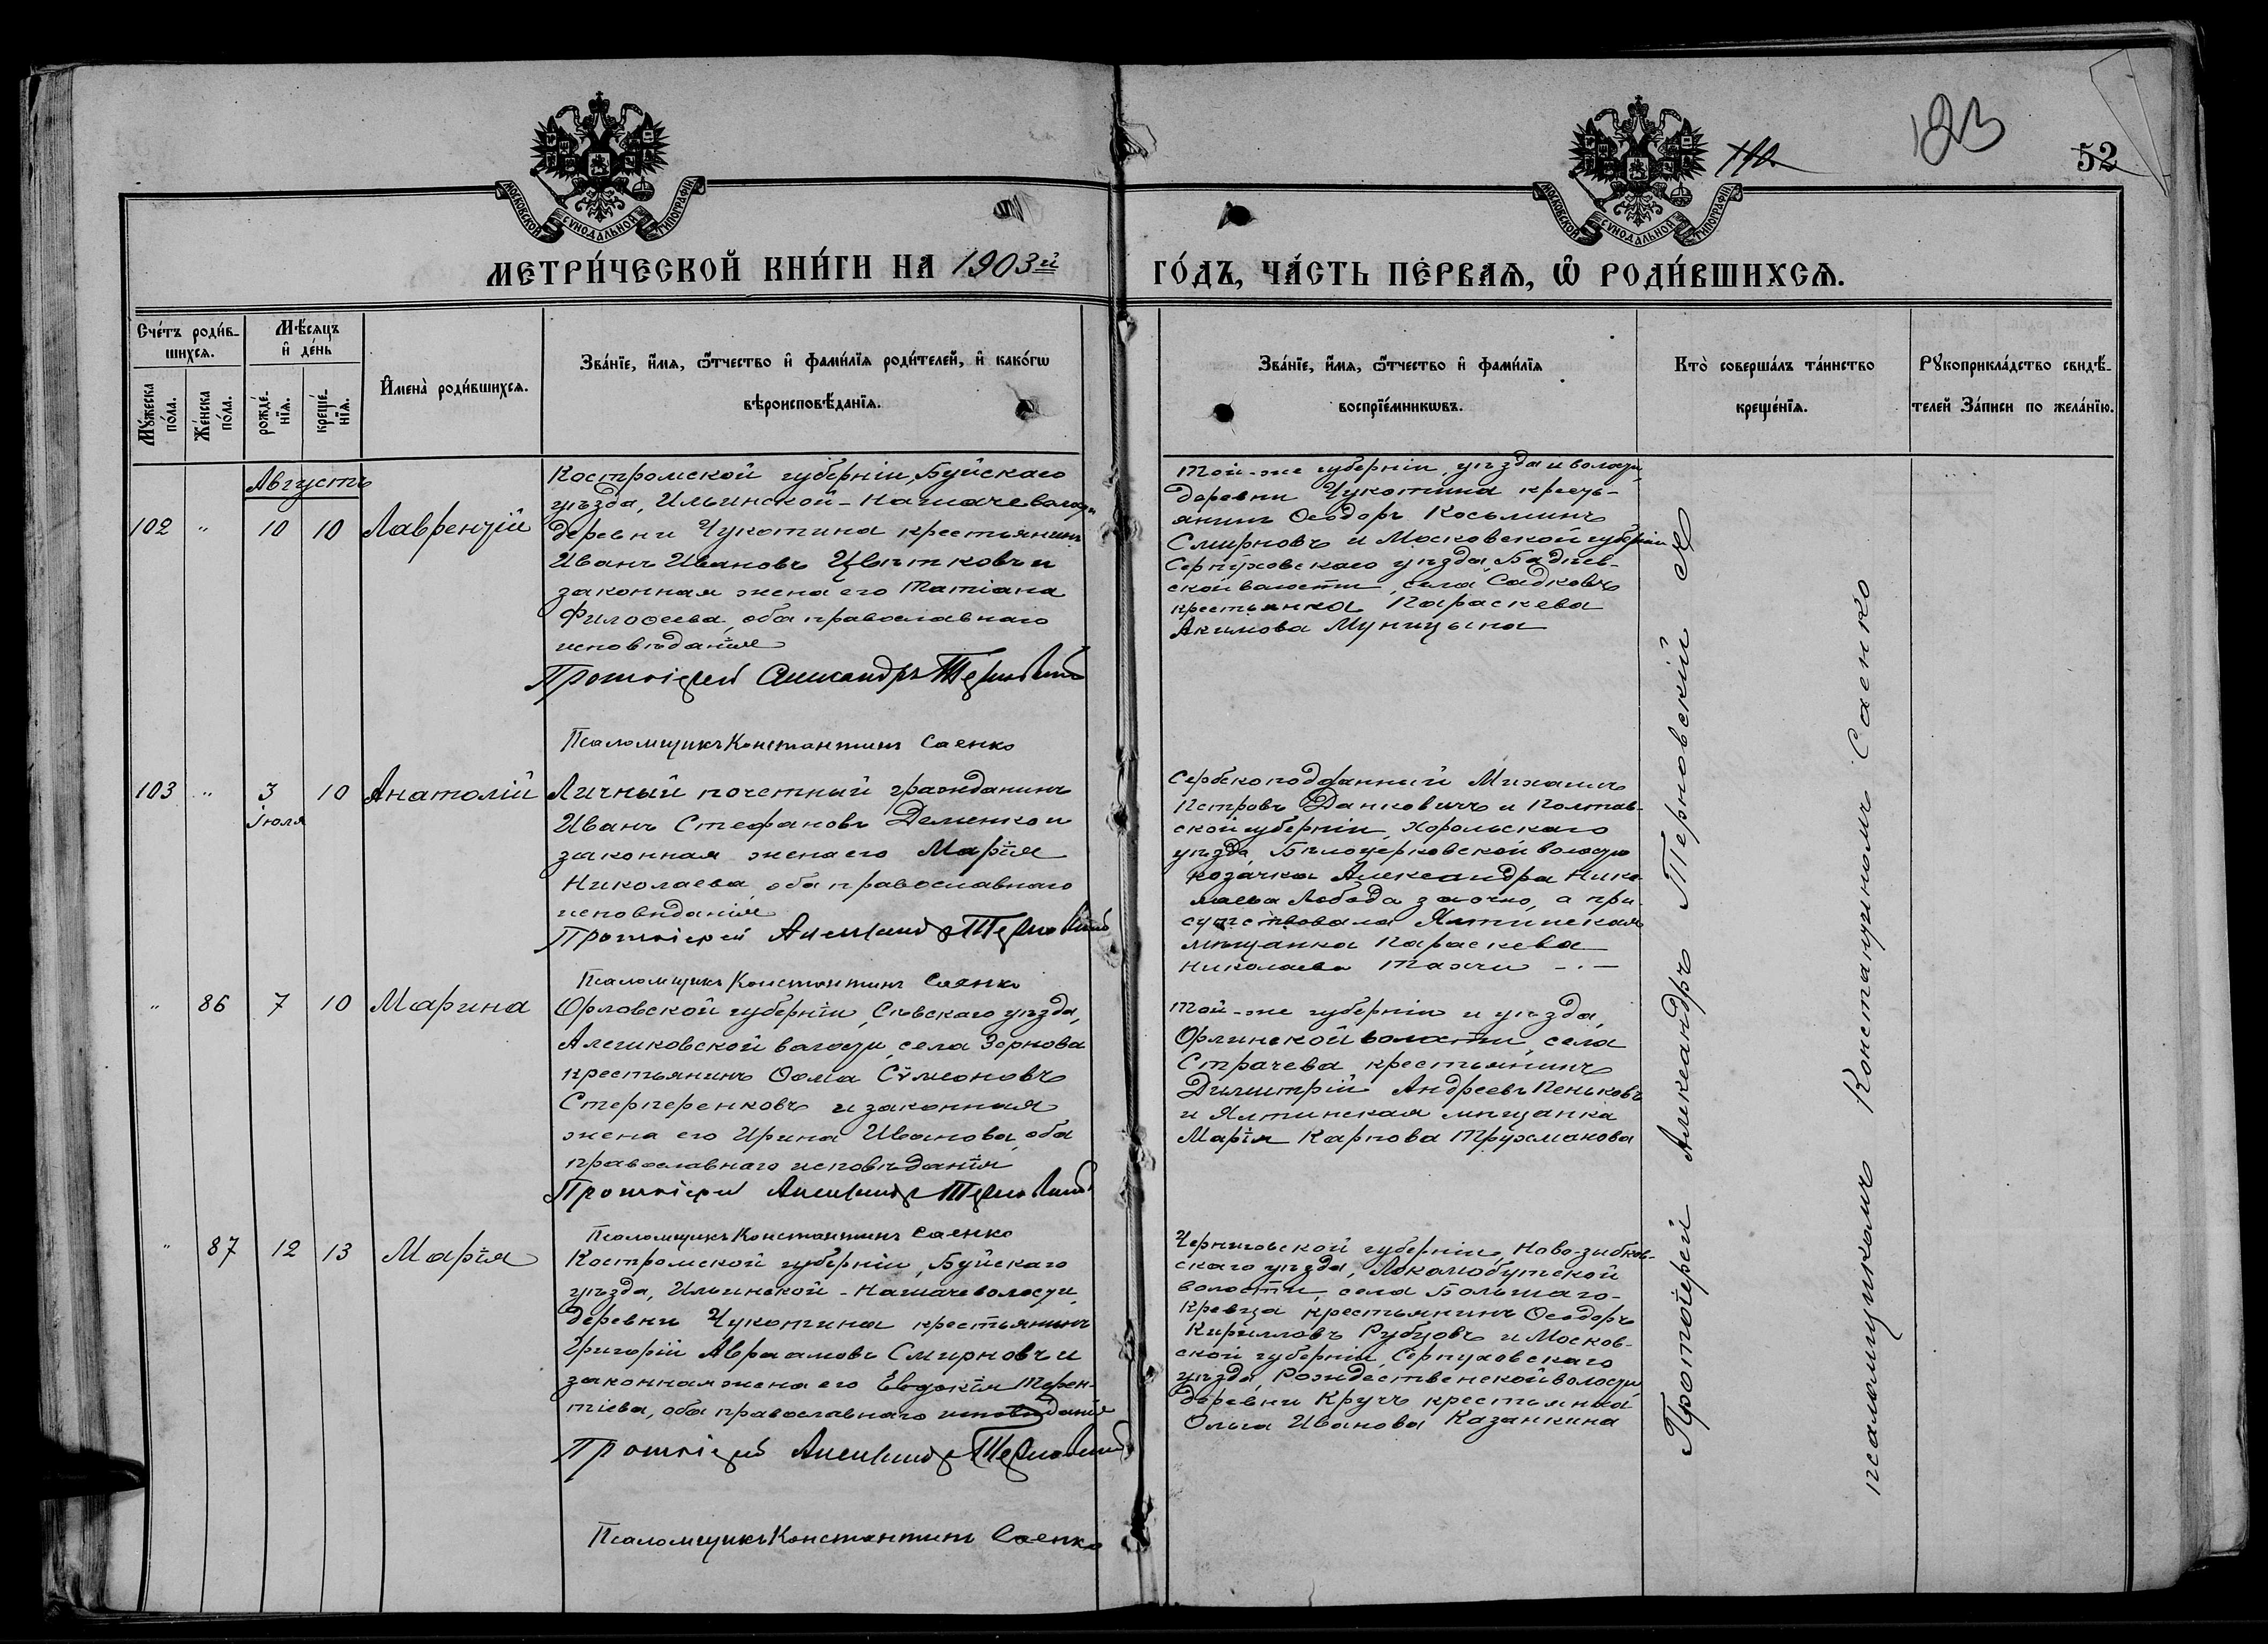 МОСКОВСКОЙ СУНОДАЛЬНОЙ ТИПОГРАФІИ
МОСКОВСКОЙ СУНОДАЛЬНОЙ ТИПОГРАФІИ
123
52
МЕТРИ́ЧЕСКОЙ КНИ́ГИ НА 1903й
ГО́ДЪ, ЧА́СТЬ ПЕ́РВАѦ, Ѡ҆ РОДИ́ВШИХСѦ.
Сче́тъ роди́в-
шихсѧ.
Мꙋ́жеска по́ла.
Же́нска по́ла.
Мѣ́сѧцъ
и҆ де́нь
рожде́-
нїѧ.
креще́-
нїѧ.
И҆мена̀ роди́вшихсѧ.
Зва́нїе, и҆́мѧ, ѻ҆́тчество и҆ фами́лїѧ роди́телей, и҆ како́гѡ
вѣроисповѣ́данїѧ.
Зва́нїе, и҆́мѧ, ѻ҆́тчество и҆ фами́лїѧ
воспрїе́мникѡвъ.
Кто̀ соверша́лъ та́инство
креще́нїѧ.
Рꙋкоприкла́дство свидѣ́-
телей За́писи по жела́нїю.
Августъ
102 " 10 10 Лаврентій
Костромской губерніи, Буйскаго
уѣзда, Ильинской-
деревни Чукотина крестьянинъ
Иванъ Ивановъ Цвѣтковъ и
законная жена его Татіана
Филоѳеева, оба православнаго
исповѣданія
Протоіерей Александръ Терновскій
Псаломщикъ Константинъ Саенко
Той-же губерніи, уѣзда и волости,
деревни Чукотина кресть-
янинъ Ѳеодоръ Косьминъ
Смирновъ и Московской губерніи
Серпуховскаго уѣзда,
ской волости, села Садковъ
крестьянка Параскева
Акимова
103 " 3 10 Анатолій
Іюля
Личный почетный гражданинъ
Иванъ Стефановъ Деменко и
законная жена его Марія
Николаева, оба православнаго
исповѣданія
Протоіерей Александръ Терновскій
Псаломщикъ Константинъ Саенко
Сербскоподданный Михаилъ
Петровъ Данковичъ и Полтав-
ской губерніи, Хорольскаго
уѣзда, Бѣлоцерковской волости
козачка Александра Нико-
лаева Лобода заочно, а при-
сутствовала Ялтинская
мѣщанка Параскева
Николаева
" 86 7 10 Марина
Орловской губерніи, Сѣвскаго уѣзда,
Алешковской волости, села Зернова
крестьянинъ Ѳома Сѵмеоновъ
Стерперенковъ и законная
жена его Ирина Иванова, оба
православнаго исповѣданія
Протоіерей Александръ Терновскій
Псаломщикъ Константинъ Саенко
Той-же губерніи и уѣзда,
Орлинской волости, села
Страчева крестьянинъ
Димитрій Андреевъ Пеньковъ
и Ялтинская мѣщанка
Марія Карпова Трухманова
" 87 12 13 Марія
Костромской губерніи, Буйскаго
уѣзда, Ильинской- волости,
деревни Чукотина крестьянинъ
Григорій Авраамовъ Смирновъ и
законная жена его Евдокія Терен-
тіева, оба православнаго исповѣданія
Протоіерей Александръ Терновскій
Псаломщикъ Константинъ Саенко
Черниговской губерніи, Ново-зыбков-
скаго уѣзда,
волости, села Большаго-
Кривца крестьянинъ Ѳеодоръ
Кирилловъ Рубцовъ и Москов-
ской губерніи, Серпуховскаго
уѣзда, Рождественской волости,
деревни Кручъ крестьянка
Ольга Иванова Казанкина
Протоіерей Александръ Терновскій съ
псаломщикомъ Константиномъ Саенко